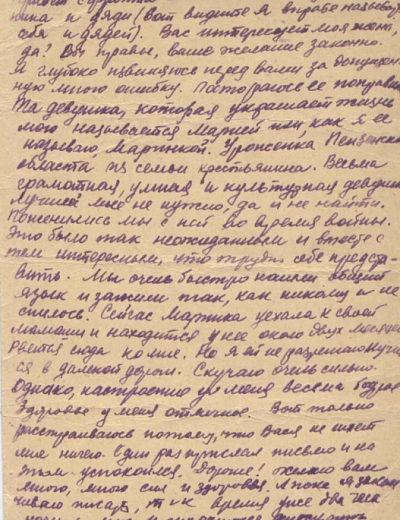 ника и дяди (Вот видите я вправе называть
себя и дядей). Вас интересует моя жена,
да? Вы правы, ваше желание законно.
Я глубоко извиняюсь перед вами за допущен-
ную мною ошибку. Постараюсь ее поправить.
Та девушка, которая украшает жизнь
мою называется Марией или, как я ее
называю, Маринкой. Уроженка Пензенской
области из семьи крестьянина. Весьма
грамотная, умная и культурная девушка.
Лучшей мне не нужно, да и не найти.
Поженились мы с ней во время войны.
Это было так неожиданным и вместе с
тем интересным, что трудно себе предста-
вить. Мы очень быстро нашли общий
язык и зажили так, как никому и не
снилось. Сейчас Маринка уехала к своей
мамаши и находится у нее около двух месяцев
Рвется сюда ко мне. Но я ей не разрешаю мучить-
ся в далекой дороге. Скучаю очень сильно.
Однако, настроение у меня весьма бодрое
Здоровье у меня отличное. Вот только
расстраиваюсь потому, что Вася не пишет
мне ничего. Один раз прислал письмо и на
этом успокоился. Дорогие! желаю вам
много, много сил и здоровья. А пока я закан-
чиваю писать, т к время уже два часа